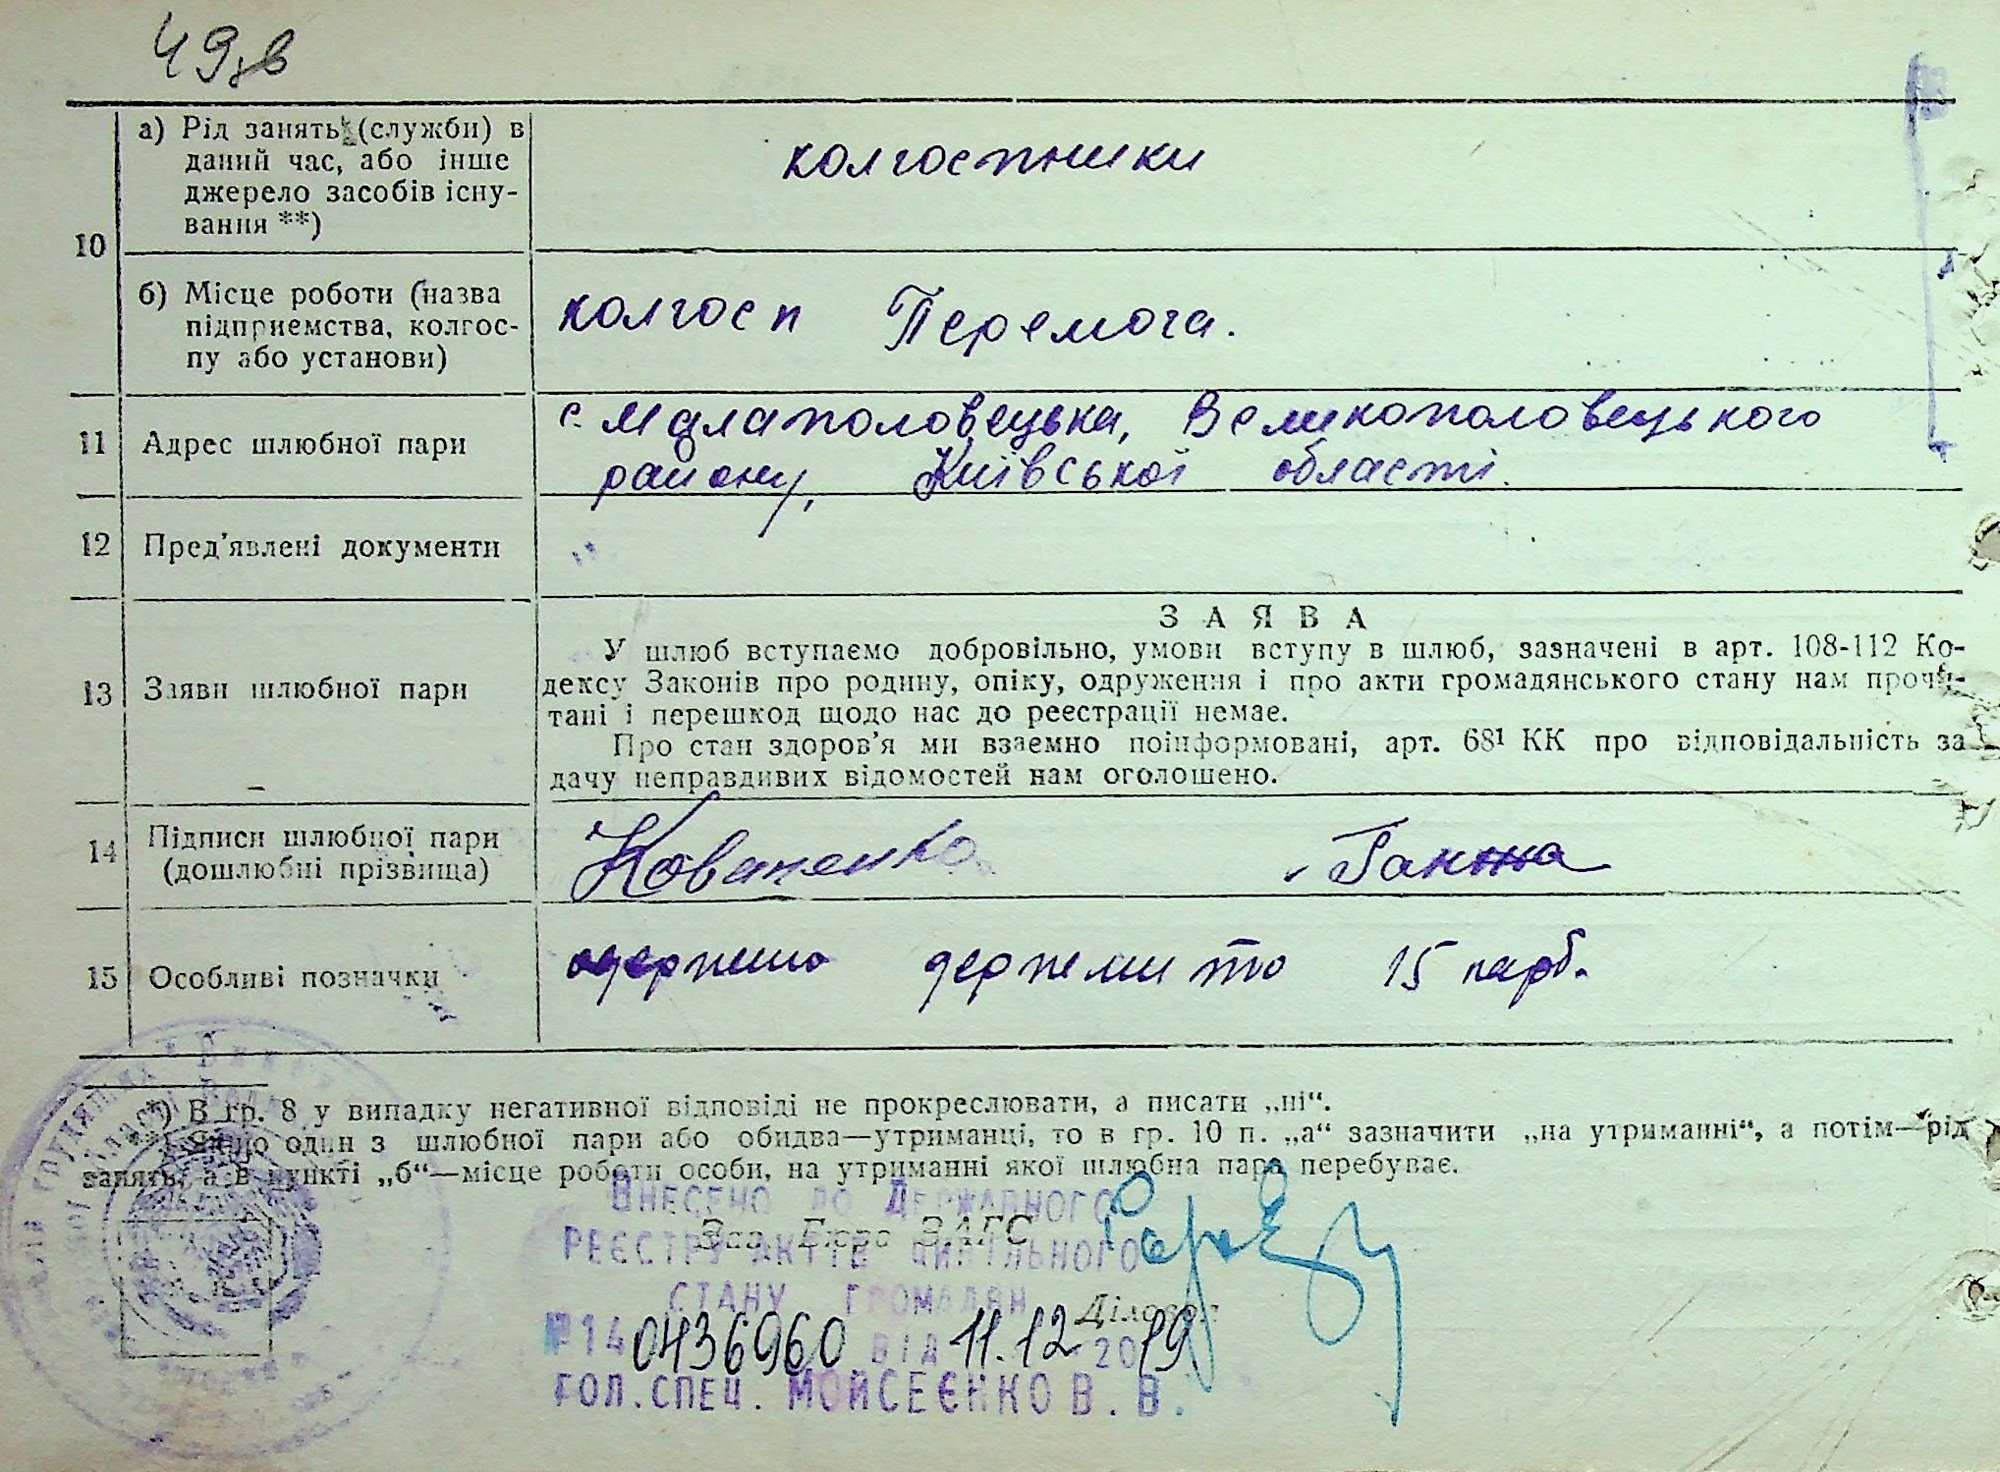 49зв
а) Рід занять (служби) в
даний час, або інше
джерело засобів існу-
вання **)
колгоспники
10
б) Місце роботи (назва
підприємства, колгос-
пу або установи)
колгосп Перемога.
11 Адрес шлюбної пари
с. Малаполовецька, Великополовецького
району, Київської області.
12 Пред'явлені документи
ЗАЯВА
13 Заяви шлюбної пари
У шлюб вступаємо добровільно, умови вступу в шлюб, зазначені в арт. 108-112 Ко-
дексу Законів про родину, опіку, одруження і про акти громадянського стану нам прочи-
тані і перешкод щодо нас до реєстрації немає.
Про стан здоров'я ми взаємно поінформовані, арт. 68¹ КК про відповідальність за
дачу неправдивих відомостей нам оголошено.
14 Підписи шлюбної пари
(дошлюбні прізвища)
Коваленко Ганжа
15 Особливі позначки
одержено держмито 15 карб.
*) В гр. 8 у випадку негативної відповіді не прокреслювати, а писати „ні“.
**) Якщо один з шлюбної пари або обидва—утриманці, то в гр. 10 п. „а“ зазначити „на утриманні“, а потім—рід
занять, а в пункті „б“—місце роботи особи, на утриманні якої шлюбна пара перебуває.
Внесено до Державного
Зав. Бюро ЗАГС
реєстру актів цивільного
стану громадян
Діловод
№140436960 від 11.12 2019
гол.спец. Мойсеєнко В.В.